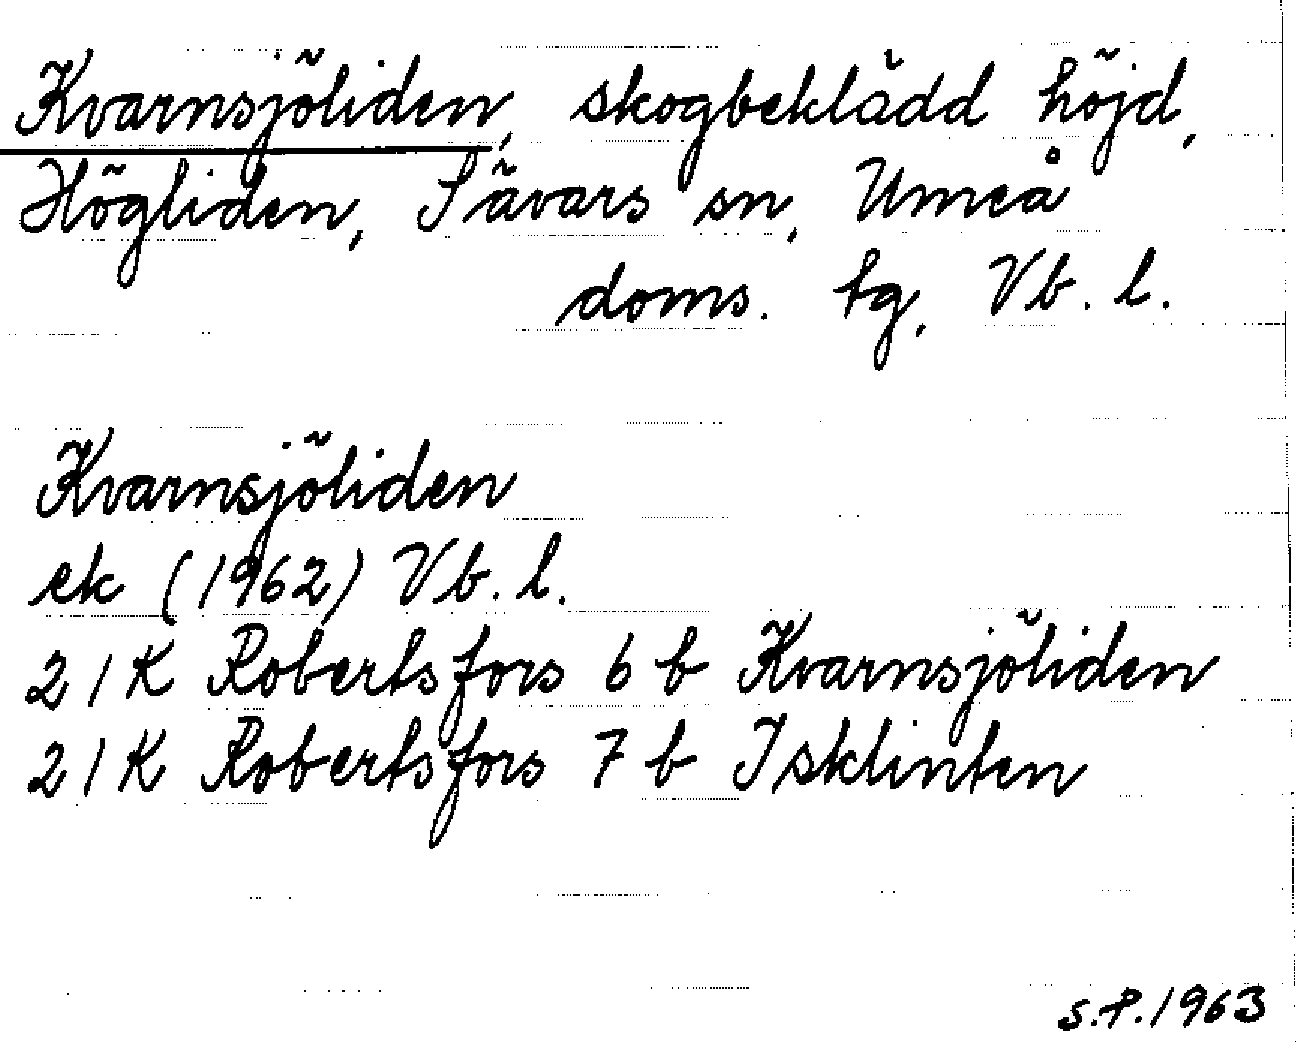 Kvarnsjöliden, skogbeklädd höjd,
Högliden, Sävars sn, Umeå
doms. tg, Vb. l.
Kvarnsjöliden
ek (1962) Vb. l.
21K Robertsfors 6 b Kvarnsjöliden
21K Robertsfors 7 b Isklinten
S.P. 1963